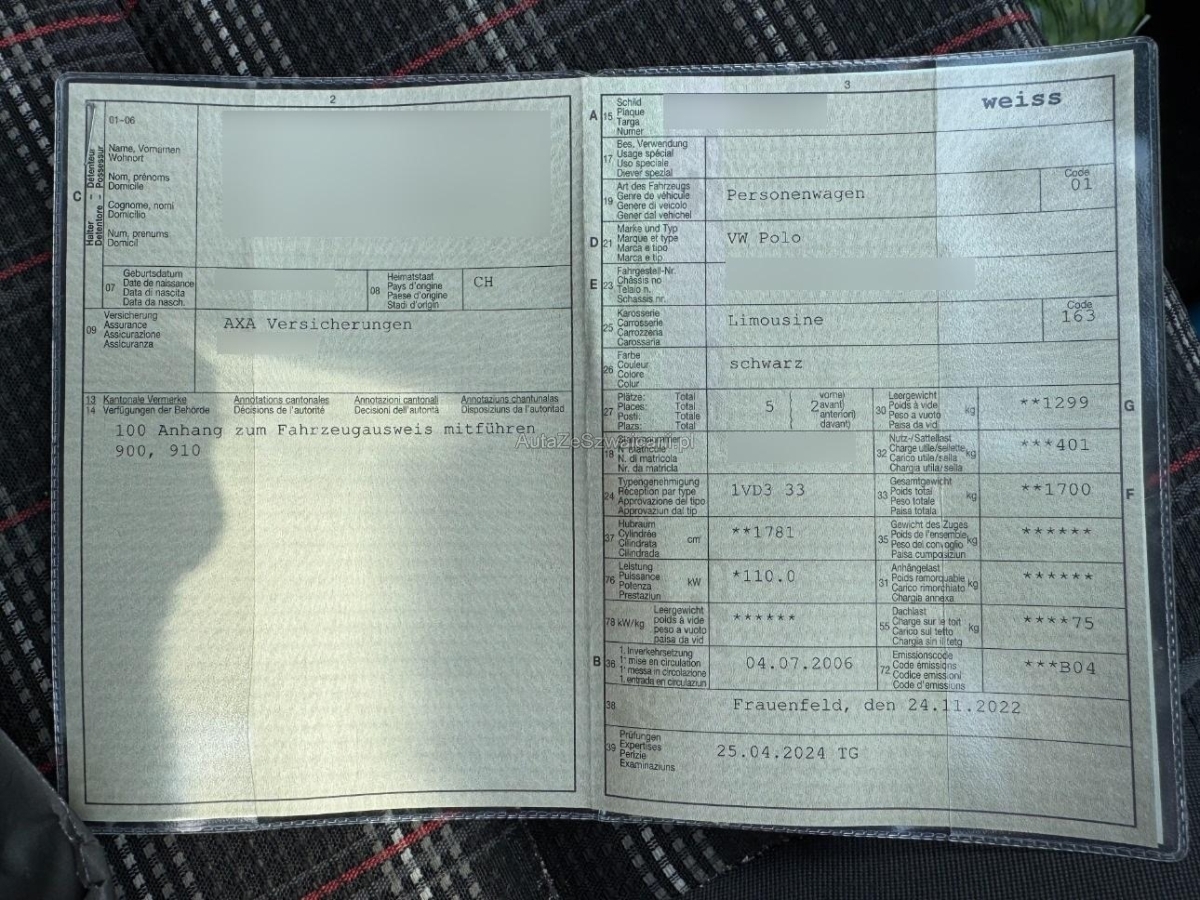 2
01-06
Halter - Détenteur
Detentore - Possessur
C
Name, Vornamen
Wohnort
Nom, prénoms
Domicile
Cognome, nomi
Domicilio
Num, prenums
Domicil
07
Geburtsdatum
Date de naissance
Data di nascita
Data da nasch.
08
Heimatstaat
Pays d'origine
Paese d'origine
Stadi d'origin
CH
09
Versicherung
Assurance
Assicurazione
Assicuranza
AXA Versicherungen
13 Kantonale Vermerke Annotations cantonales Annotazioni cantonali Annotaziuns chantunalas
14 Verfügungen der Behörde Décisions de l'autorité Decisioni dell'autorità Disposiziuns da l'autoritad
100 Anhang zum Fahrzeugausweis mitführen
900, 910
AutaZeSzwajcarii.pl
3
A 15
Schild
Plaque
Targa
Numer
weiss
17
Bes. Verwendung
Usage spécial
Uso speciale
Diever spezial
19
Art des Fahrzeugs
Genre de véhicule
Genere di veicolo
Gener dal vehichel
Personenwagen
Code
01
D 21
Marke und Typ
Marque et type
Marca e tipo
Marca e tip
VW Polo
E 23
Fahrgestell-Nr.
Châssis no
Telaio n.
Schassis nr.
25
Karosserie
Carrosserie
Carrozzeria
Carossaria
Limousine
Code
163
26
Farbe
Couleur
Colore
Colur
schwarz
27
Plätze: Total
Places: Total
Posti: Totale
Plazs: Total
5
2
vorne)
avant)
anteriori)
davant)
30
Leergewicht
Poids à vide
Peso a vuoto
Paisa da vid
kg
**1299
G
18
N. di matricola
Nr. da matricla
32
Nutz-/Sattellast
Charge utile/sellette
Carico utile/sella
Chargia utila/sella
kg
***401
24
Typengenehmigung
Réception par type
Approvazione del tipo
Approvaziun dal tip
1VD3 33
33
Gesamtgewicht
Poids total
Peso totale
Paisa totala
kg
**1700
F
37
Hubraum
Cylindrée
Cilindrata
Cilindrada
cm³
**1781
35
Gewicht des Zuges
Poids de l'ensemble
Peso del convoglio
Paisa cumposiziun
kg
******
76
Leistung
Puissance
Potenza
Prestaziun
kW
*110.0
31
Anhängelast
Poids remorquable
Carico rimorchiato
Chargia annexa
kg
******
78 kW/kg
Leergewicht
poids à vide
peso a vuoto
paisa da vid
******
55
Dachlast
Charge sur le toit
Carico sul tetto
Chargia sin il tetg
kg
****75
B 36
1. Inverkehrsetzung
1re mise en circulation
1a messa in circolazione
1. entrada en circulaziun
04.07.2006
72
Emissionscode
Code émissions
Codice emissioni
Code d'emissiuns
***B04
38
Frauenfeld, den 24.11.2022
39
Prüfungen
Expertises
Perizie
Examinaziuns
25.04.2024 TG